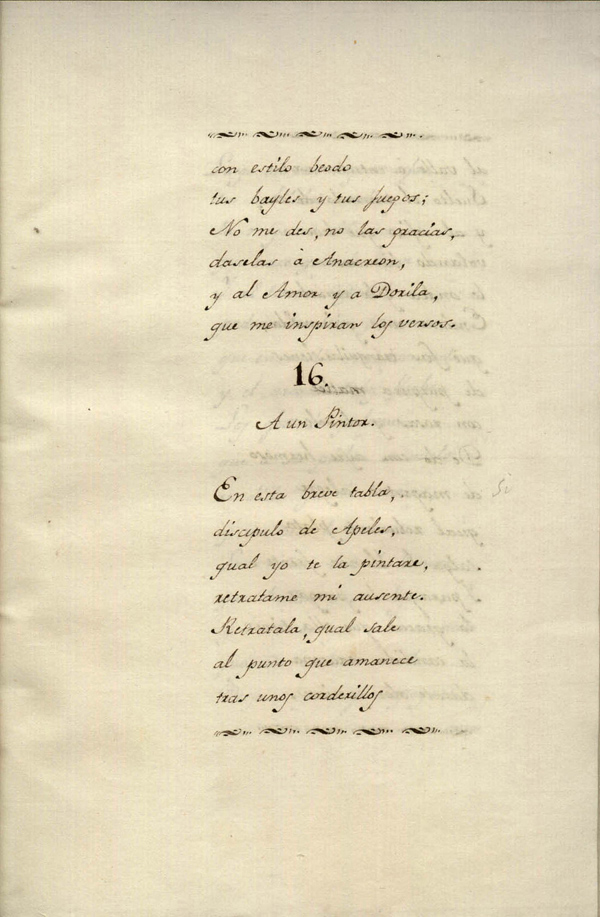 con estilo beodo
tus bayles y tus juegos;
No me des, no las gracias,
daselas à Anacreon,
y al Amor y a Dorila,
que me inspiran los versos.
16.
A un Pintor.
En esta breve tabla,
discipulo de Apeles,
qual yo te la pintare,
retratame mi ausente.
Retratala, qual sale
al punto que amanece
tras unos corderillos